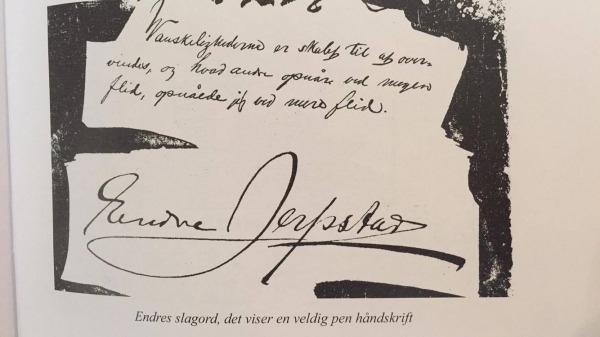 Vanskelighederne er skabt til at over-
vindes, og hvad andre opnåar ved megen
flid, opnåede jeg ved mere flid.
Endre Jerpstad
Endres slagord, det viser en veldig pen håndskrift